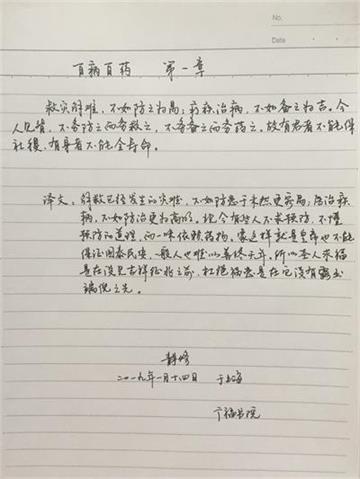 No.
Date
百病百药 第一章
救灾解难，不如防之为易；疗疾治病，不如备之为吉。今
人见背，不务防之而务救之，不务备之而务药之。故有君者不能保
社稷，有身者不能全寿命。
译文，解救已经发生的灾难，不如防患于未然更容易；治疗疾
病，不如防治更为高明。现今有些人不求预防，不懂
预防的道理，而一味依赖药物。像这样就是皇帝也不能
保证国泰民安，一般人也难以善终天年。所以圣人求福
是在没见吉祥征兆之前，杜绝祸患是在它没有露出
端倪之先。
静修
二〇一九年一月十四日 于上海
广福书院